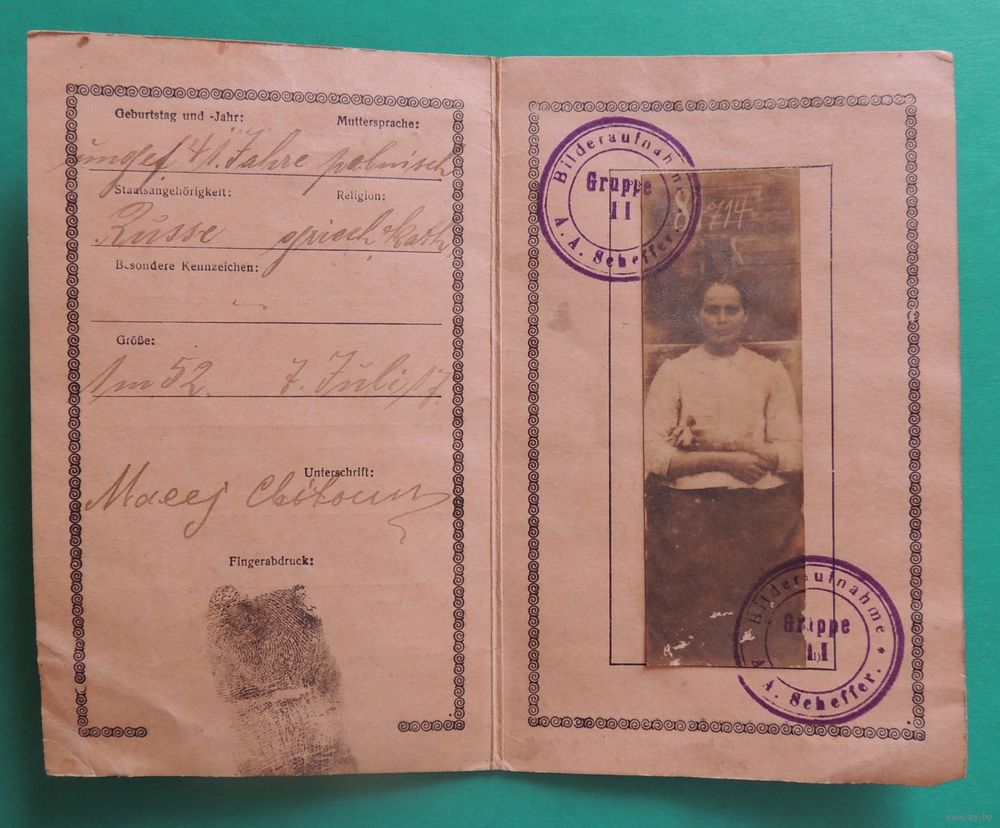 Geburtstag und -Jahr: Muttersprache:
ungef 41 Jahre polnisch
Staatsangehörigkeit: Religion:
Russe griech kath
Besondere Kennzeichen:
Größe:
1 m 52. 7. Juli 17
Unterschrift:
Fingerabdruck:
Bilderaufnahme
Gruppe
II
A. A. Scheffer.
8714
Bilderaufnahme
Gruppe
II
A. A. Scheffer.